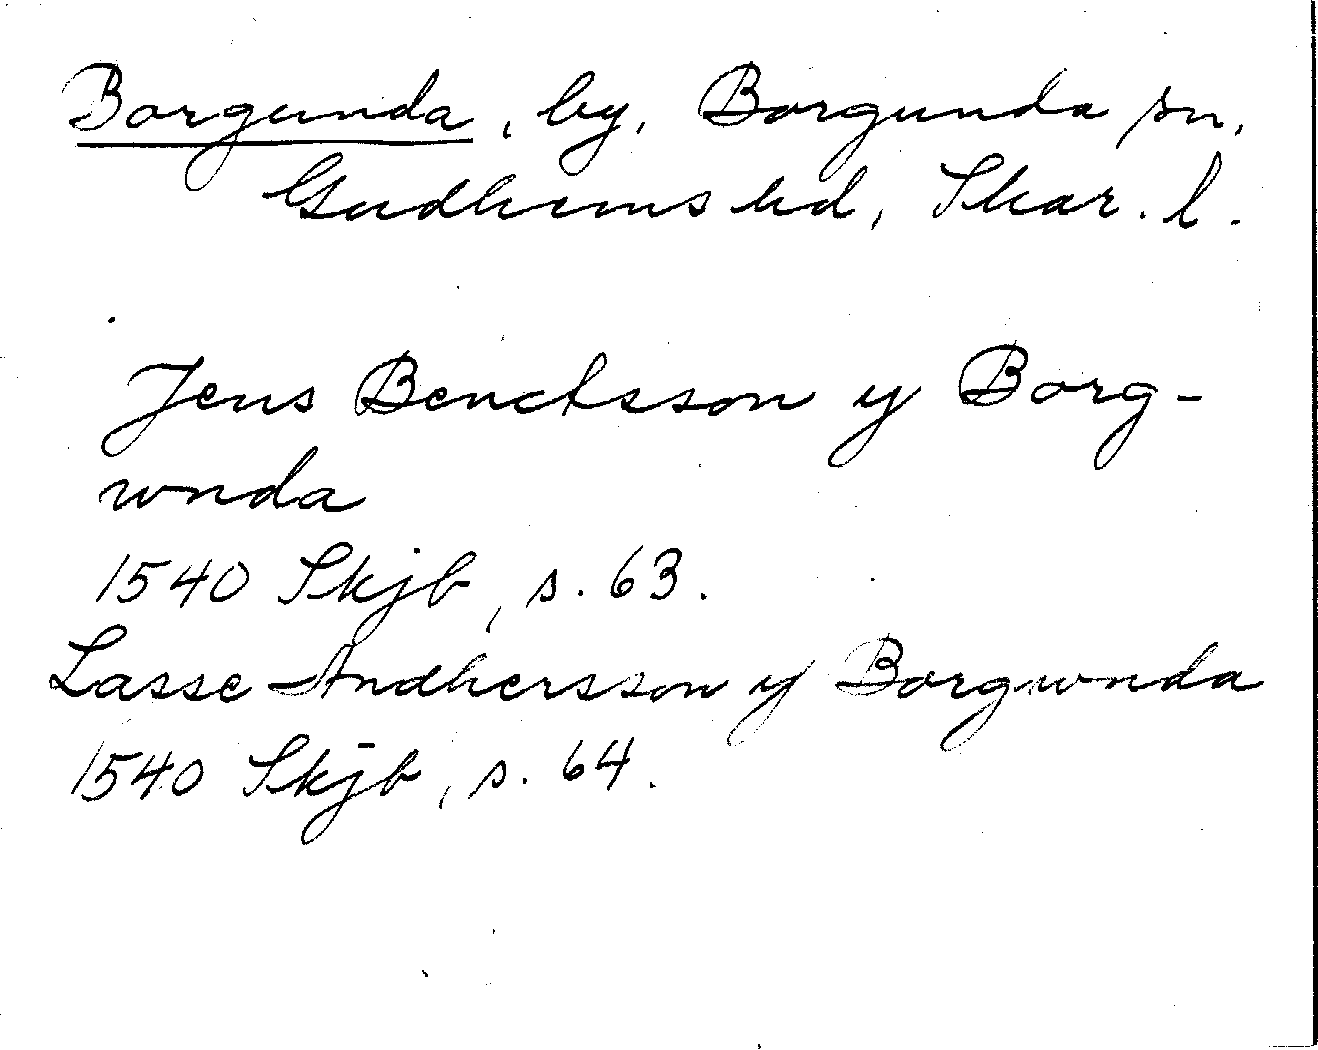 Borgunda, by, Borgunda sn,
Gudhems hd, Skar. l.
Jens Benctsson y Borg-
wnda
1540 Skjb, s. 63.
Lasse Andhersson y Borgwnda
1540 Skjb, s. 64.